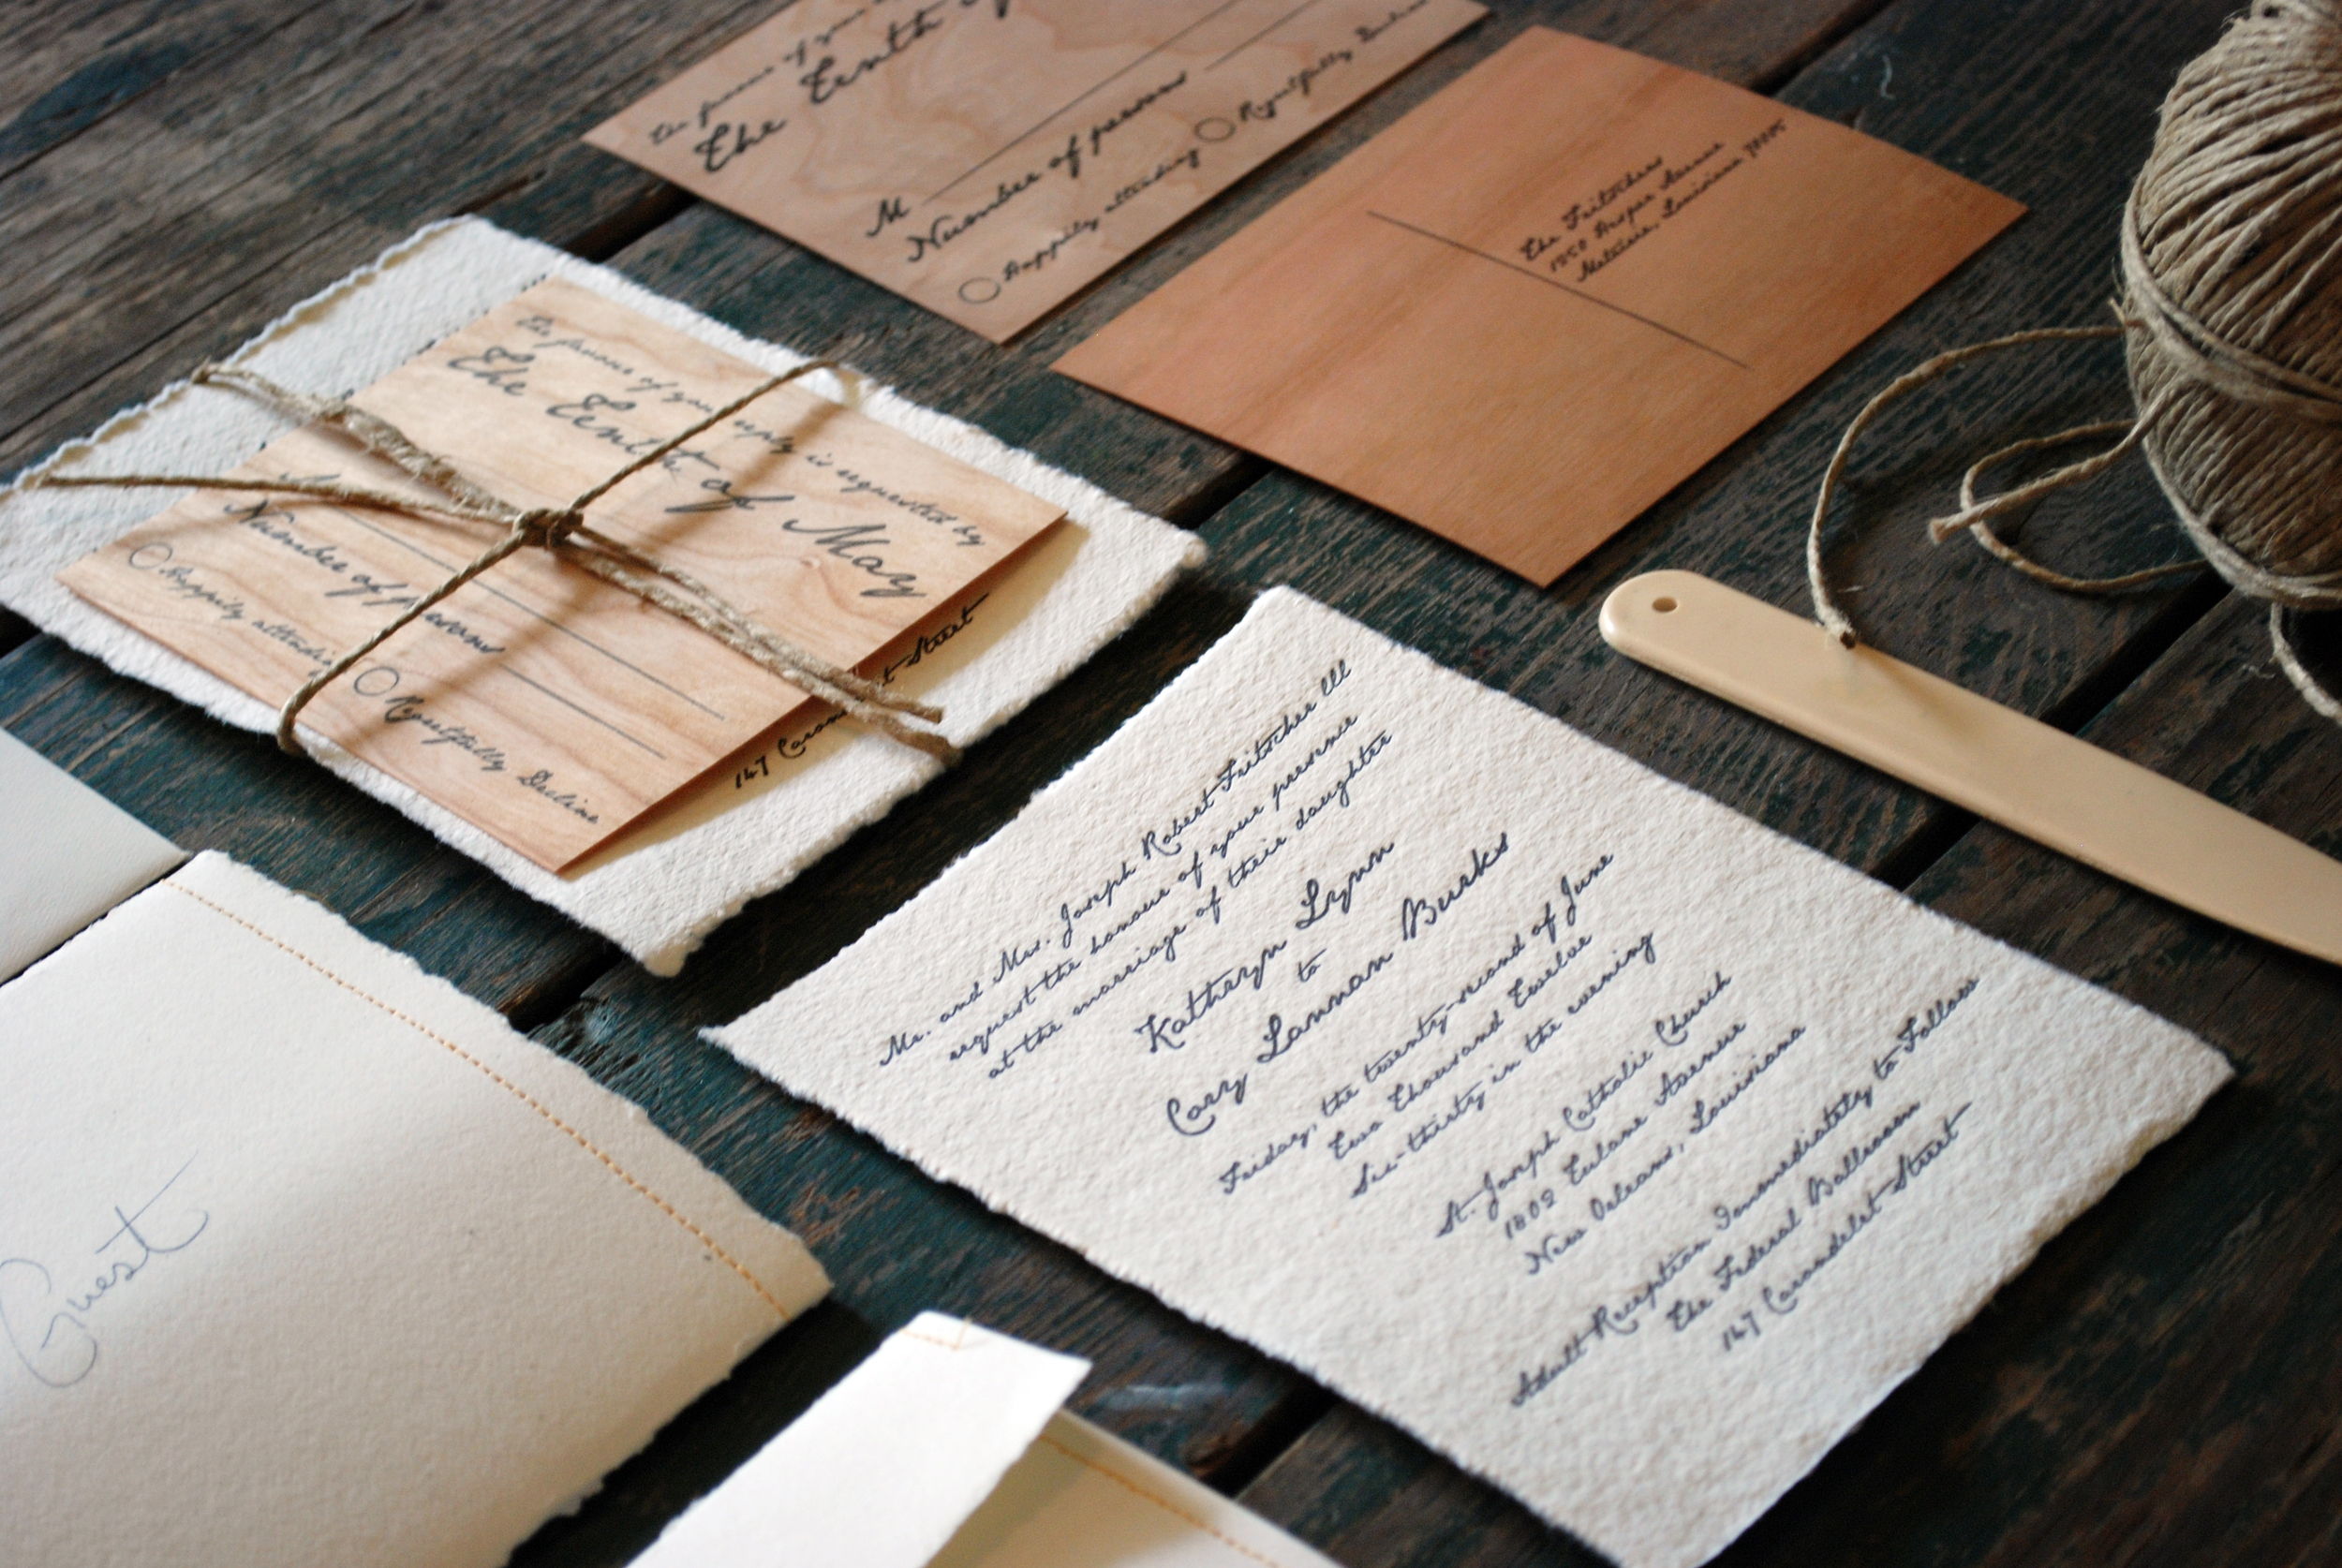 The favour of your
The Tenth of
M
Number of persons
Happily attending Regretfully Decline
The Fritschers
1850 Asper Avenue
Metairie, Louisiana 70005
The favour of your reply is requested by
The Tenth of May
M
Number of persons
Happily attending Regretfully Decline
147 Caron t Street
Mr. and Mrs. Joseph Robert Fritscher III
request the honour of your presence
at the marriage of their daughter
Kathryn Lynn
to
Cary Lannan Burks
Friday, the twenty-second of June
Two Thousand Twelve
Six-thirty in the evening
St. Joseph Catholic Church
1802 Tulane Avenue
New Orleans, Louisiana
Adult Reception Immediately to Follow
The Federal Ballroom
147 Carondelet Street
Guest